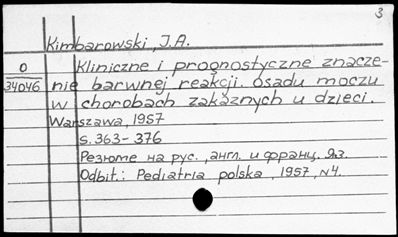 3
Kimbarowski, J.A.
0
34046
Kliniczne i prognostyczne znacze-
nie barwnej reakcji osadu moczu
w chorobach zakaźnych u dzieci.
Warszawa, 1957
s. 363-376
Резюме на рус., англ. и франц. яз.
Odbit.: Pediatria polska, 1957, N4.